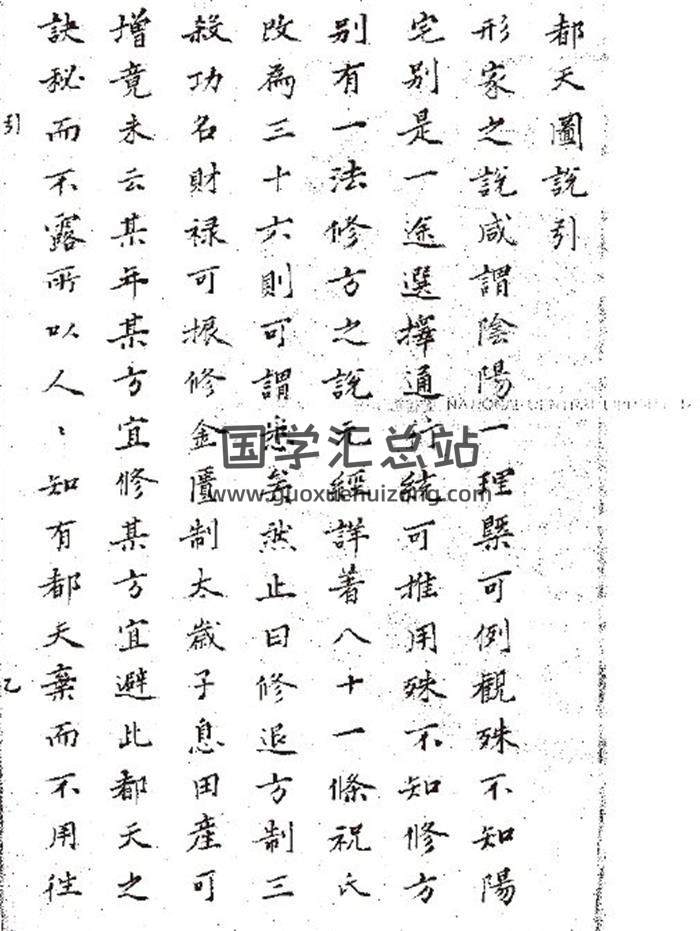 都天圖說引
形家之說咸謂陰陽一理槩可例觀殊不知陽
宅別是一途選擇通行統可推用殊不知修方
別有一法修方之說元經詳著八十一條祝氏
改為三十六則可謂悉矣然止曰修退方制三
殺功名財祿可振修金匱制太歲子息田產可
增竟未云某年某方宜修某方宜避此都天之
訣秘而不露所以人〻知有都天棄而不用往
引
乙
国学汇总站
www.guoxuehuizong.com
NATIONAL CENTRAL